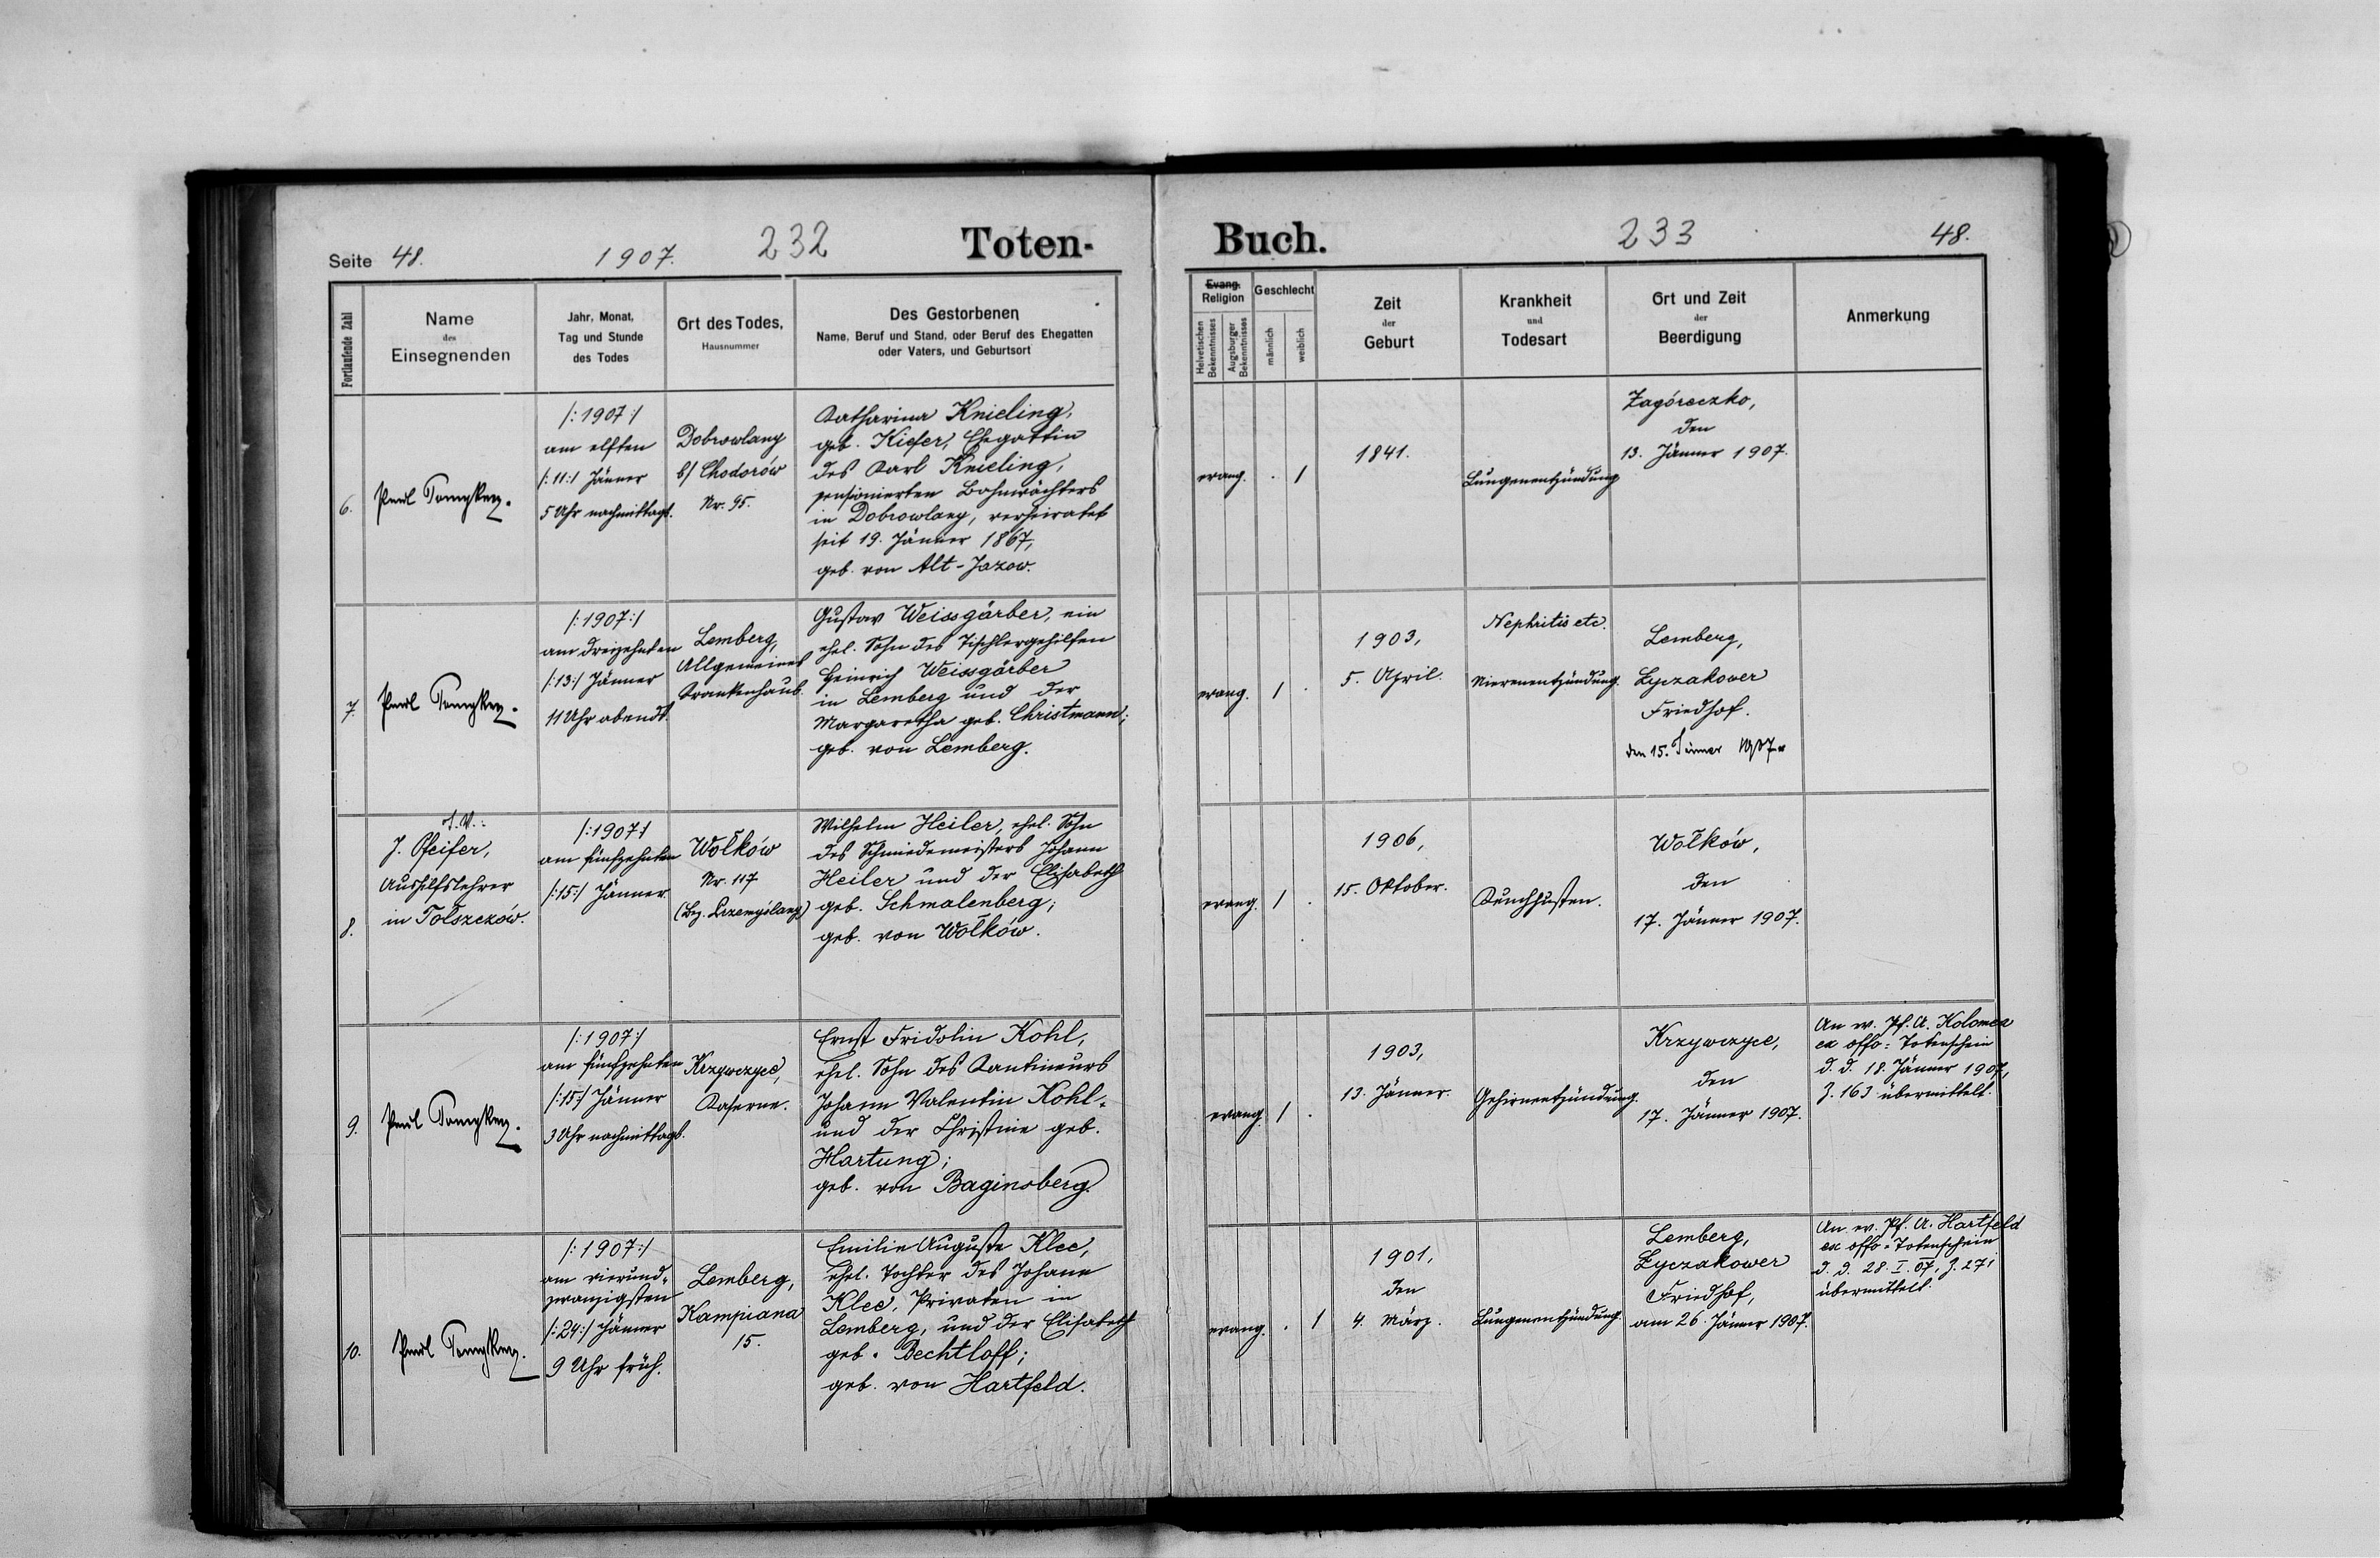 Seite 48. 1907. 232 Toten-
Fortlaufende Zahl
Name
des
Einsegnenden
Jahr, Monat,
Tag und Stunde
des Todes
Ort des Todes,
Hausnummer
Des Gestorbenen
Name, Beruf und Stand, oder Beruf des Ehegatten
oder Vaters, und Geburtsort
6.
Paul
/:1907:/
am elften
/:11:/ Jänner
5 Uhr nachmittags.
Dobrowlany
b/ Chodorów
Nr. 95.
Katharina Knieling,
geb. Kiefer, Ehegattin
des Karl Knieling,
pensionierten Bahnwächters
in Dobrowlany, verheiratet
seit 19. Jänner 1867,
geb. von Alt-Jazow.
7.
Paul
/:1907:/
am dreizehnten
/:13:/ Jänner
11 Uhr abends.
Lemberg,
Allgemeines
Krankenhaus.
Gustav Weissgärber, ein
ehel. Sohn des Tischlergehilfen
Heinrich Weissgärber
in Lemberg und der
Margaretha geb. Christmann;
geb. von Lemberg.
8.
J. Pfeifer,
Aushilfslehrer
in Tołszczów.
/:1907:/
am fünfzehnten
/:15:/ Jänner.
Wołków
Nr. 117
(Bez. Przemyślany)
Wilhelm Heiler, ehel. Sohn
des Schmiedemeisters Johann
Heiler und der Elisabeth
geb. Schmalenberg;
geb. von Wołków.
9.
Paul
/:1907:/
am fünfzehnten
/:15:/ Jänner
3 Uhr nachmittags.
Krzywczyce,
Kaserne.
Ernst Fridolin Kohl,
ehel. Sohn des Kantineurs
Johann Valentin Kohl
und der Christine geb.
Hartung;
geb. von Baginsberg.
10.
Paul
/:1907:/
am vierund-
zwanzigsten
/:24:/ Jänner
9 Uhr früh.
Lemberg,
Kampiana
15.
Emilie Auguste Klee,
ehel. Tochter des Johann
Klee, Privaten in
Lemberg, und der Elisabeth
geb. Bechtloff;
geb. von Hartfeld.
Buch. 233 48.
Evang.
Religion
Helvetischen Bekenntnisses
Augsburger Bekenntnisses
Geschlecht
männlich
weiblich
Zeit
der
Geburt
Krankheit
und
Todesart
Ort und Zeit
der
Beerdigung
Anmerkung
evang. . 1
1841.
Lungenentzündung
Zagóreczko,
den
13. Jänner 1907.
evang. 1 .
1903,
5. April.
Nephritis etc.
Nierenentzündung.
Lemberg,
Łyczakower
Friedhof.
den 15. Jänner 1907.
evang. 1 .
1906,
15. Oktober.
Keuchhusten.
Wołków,
den
17. Jänner 1907.
evang. 1 .
1903,
13. Jänner.
Gehirnentzündung.
Krzywczyce,
den
17. Jänner 1907.
An ev. Pf. A. Kolomea
ex offo-Totenschein
d. d. 18. Jänner 1907,
Z. 163 übermittelt.
evang. . 1
1901,
den
4. März.
Lungenentzündung.
Lemberg,
Łyczakower
Friedhof,
am 26. Jänner 1907.
An ev. Pf. A. Hartfeld
ex offo-Totenschein
d. d. 28. I. 07, Z. 271
übermittelt.